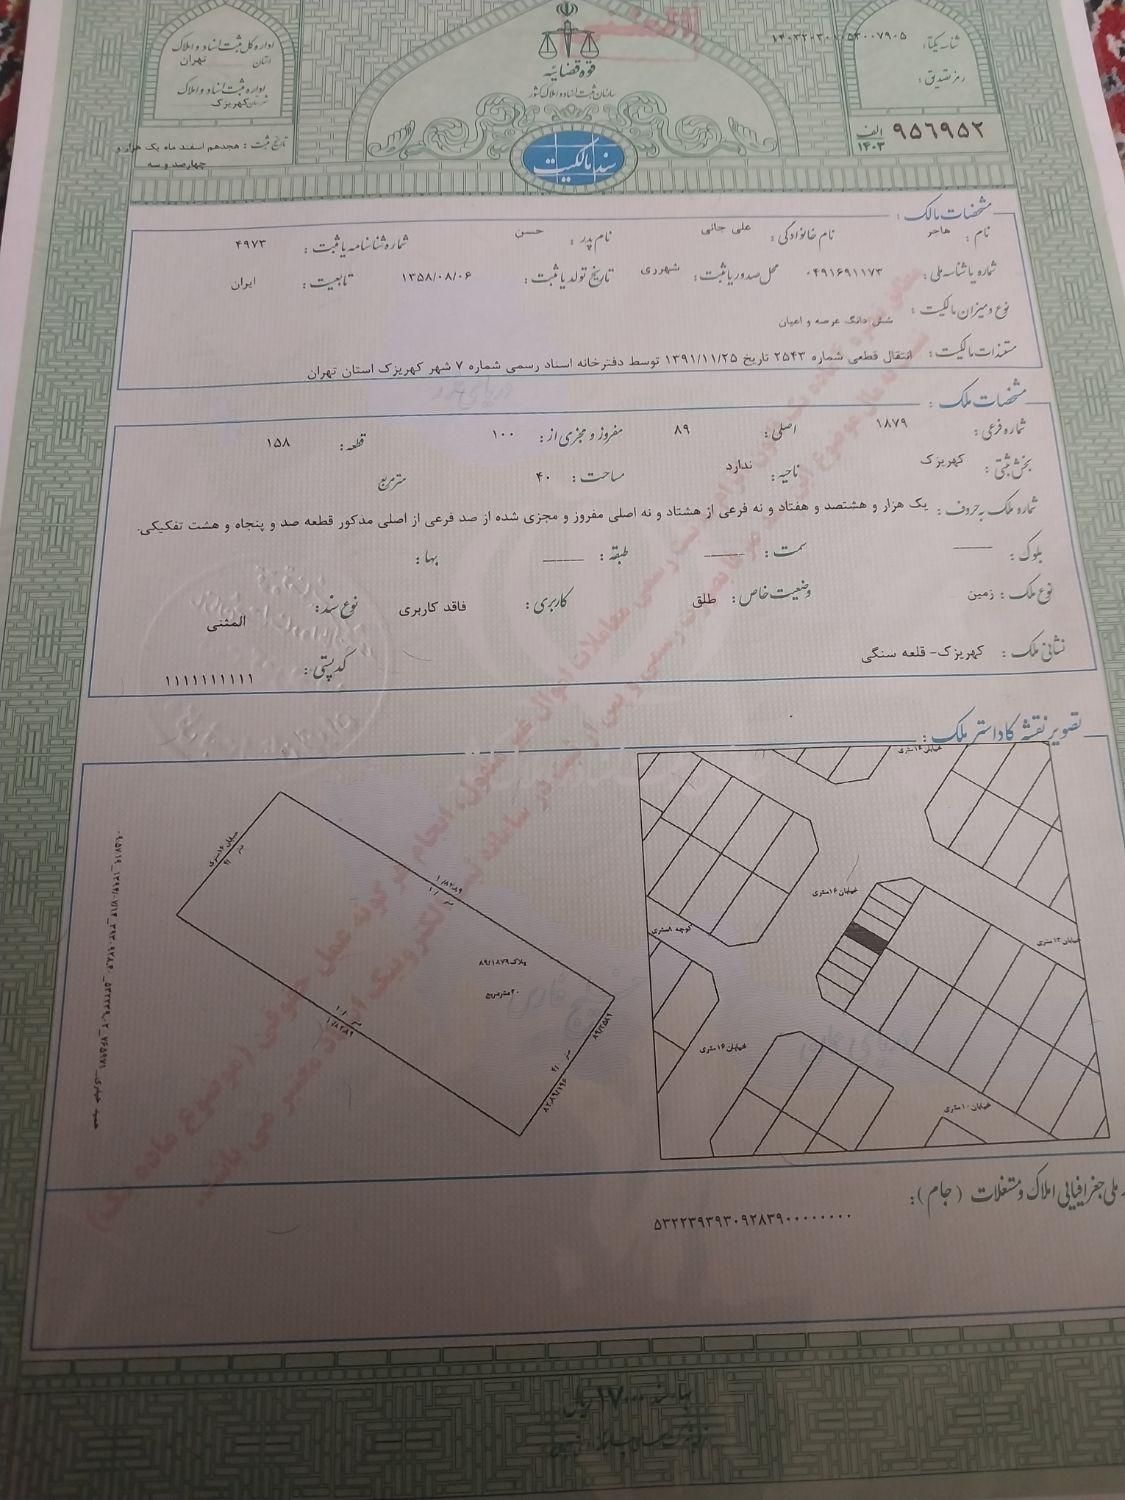 قوه قضائیه
سازمان ثبت اسناد و املاک کشور
سند مالکیت
اداره کل ثبت اسناد و املاک
استان تهران
اداره ثبت اسناد و املاک
شهرستان کهریزک
تاریخ ثبت : هجدهم اسفند ماه یک هزار و
چهارصد و سه
شناسه یکتا :
رمز تصدیق :
۹۵۶۹۵۲ الف
۱۴۰۳
مشخصات مالک :
نام : هاجر نام خانوادگی : علی جانی نام پدر : حسن شماره شناسنامه یا ثبت : ۴۹۷۳
شماره یا شناسه ملی : ۰۴۹۱۶۹۱۱۷۳ محل صدور یا ثبت : شهرری تاریخ تولد یا ثبت : ۱۳۵۸/۰۸/۰۶ تابعیت : ایران
نوع و میزان مالکیت : شش دانگ عرصه و اعیان
مستندات مالکیت : انتقال قطعی شماره ۲۵۴۳ تاریخ ۱۳۹۱/۱۱/۲۵ توسط دفترخانه اسناد رسمی شماره ۷ شهر کهریزک استان تهران
مشخصات ملک :
شماره فرعی : ۱۸۷۹ اصلی : ۸۹ مفروز و مجزی از : ۱۰۰ قطعه : ۱۵۸
بخش ثبتی : کهریزک ناحیه : ندارد مساحت : ۴۰ مترمربع
شماره ملک به حروف : یک هزار و هشتصد و هفتاد و نه فرعی از هشتاد و نه اصلی مفروز و مجزی شده از صد فرعی از اصلی مذکور قطعه صد و پنجاه و هشت تفکیکی.
بلوک : ـــــــ سمت : ـــــــ طبقه : ـــــــ بها :
نوع ملک : زمین وضعیت خاص : طلق کاربری : فاقد کاربری نوع سند : المثنی
نشانی ملک : کهریزک- قلعه سنگی کدپستی : ۱۱۱۱۱۱۱۱۱۱
تصویر نقشه کاداستر ملک :
خیابان ۱۶متری
خیابان ۱۶متری
کوچه ۸متری
خیابان ۱۲متری
خیابان ۱۶متری
خیابان ۱۰متری
خیابان ۱۶متری
پلاک ۸۹/۱۸۷۹
۴۰مترمربع
ملی جغرافیایی املاک و مستغلات (جام) :
۵۳۲۲۳۹۳۹۳۰۹۲۸۳۹۰۰۰۰۰۰۰۰